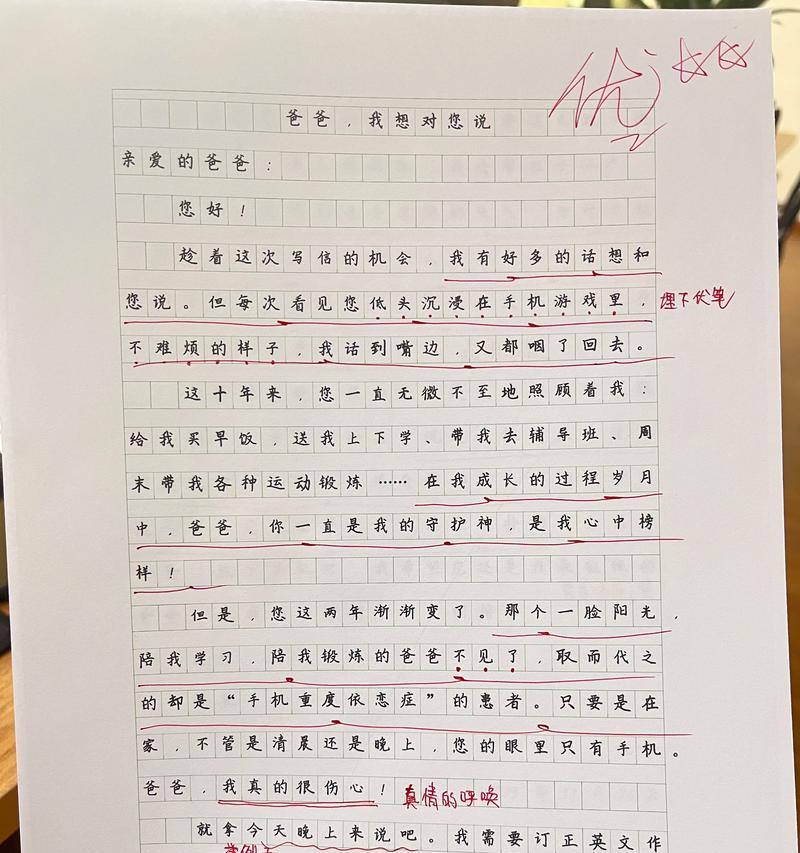 优
爸爸，我想对您说
亲爱的爸爸：
您好！
趁着这次写信的机会，我有好多的话想和
您说。但每次看见您低头沉漫在手机游戏里，
埋下伏笔
不难烦的样子，我话到嘴边，又都咽了回去。
这十年来，您一直无微不至地照顾着我：
给我买早饭，送我上下学、带我去辅导班、周
末带我各种运动锻炼……在我成长的过程岁月
中，爸爸，你一直是我的守护神，是我心中榜
样！
但是，您这两年渐渐变了。那个一脸阳光，
陪我学习，陪我锻炼的爸爸不见了，取而代之
的却是“手机重度依恋症”的患者。只要是在
家，不管是清晨还是晚上，您的眼里只有手机。
爸爸，我真的很伤心！
真情的呼唤
就拿今天晚上来说吧。我需要订正英文作